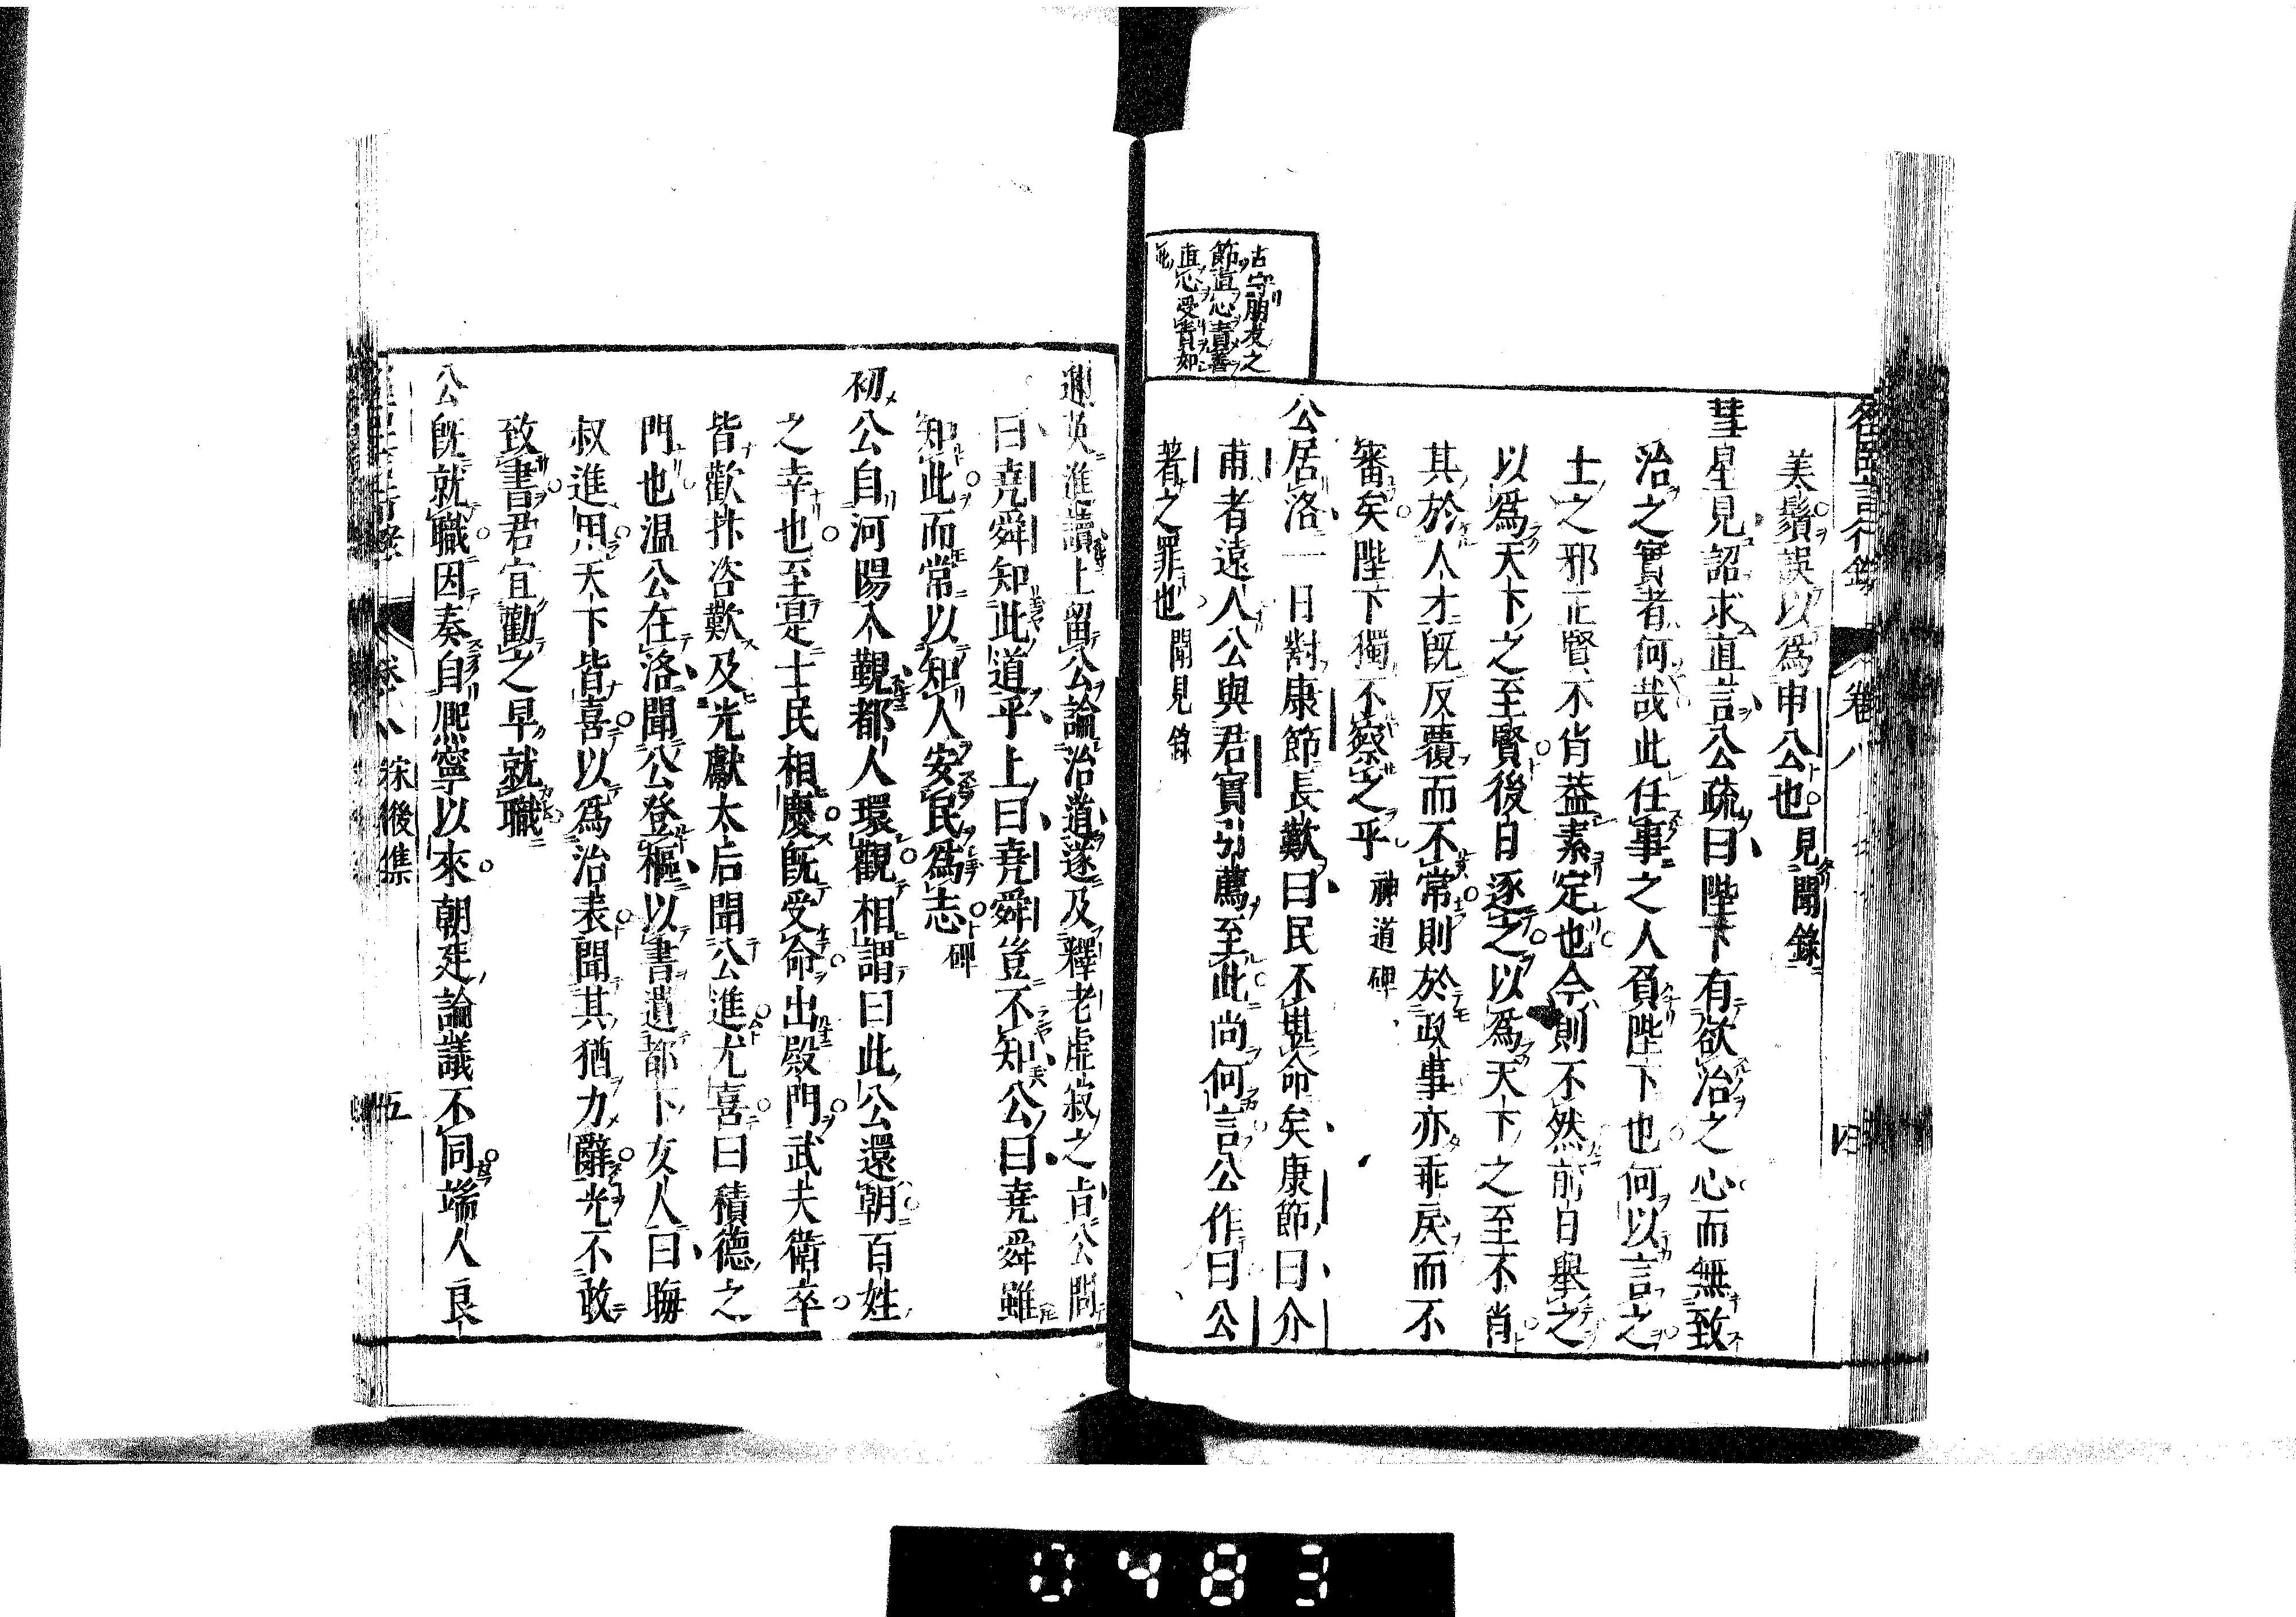 名臣言行錄 卷八 四
美鬚誤以爲申公也見聞錄
彗星見詔求直言公疏曰陛下有欲治之心而無致
治之實者何哉此任事之人負陛下也何以言之
士之邪正賢不肖葢素定也今則不然前日舉之
以爲天下之至賢後日逐之以爲天下之至不肖
其於人才旣反覆而不常則於政事亦乖戾而不
審矣陛下獨不察之乎神道碑
公居洛一日對康節長歎曰民不堪命矣康節曰介
甫者遠人公與君實引薦至此尚何言公作曰公
著之罪也聞見錄
古守朋友之
節直心責善
直心受責如
此
邇英進讀上留公論治道遂及釋老虛寂之旨公問
曰堯舜知此道乎上曰堯舜豈不知公曰堯舜雖
知此而常以知人安民爲志碑
初公自河陽入覲都人環觀相謂曰此公還朝百姓
之幸也至是士民相慶旣受命出殿門武夫衛卒
皆歡抃咨歎及光獻太后聞公進尤喜曰積德之
門也溫公在洛聞公登樞以書遺都下友人曰晦
叔進用天下皆喜以爲治表聞其猶力辭光不敢
致書君宜勸之早就職
公旣就職因奏自熙寧以來朝廷論議不同端人良
卷八 宋後集 五
0483